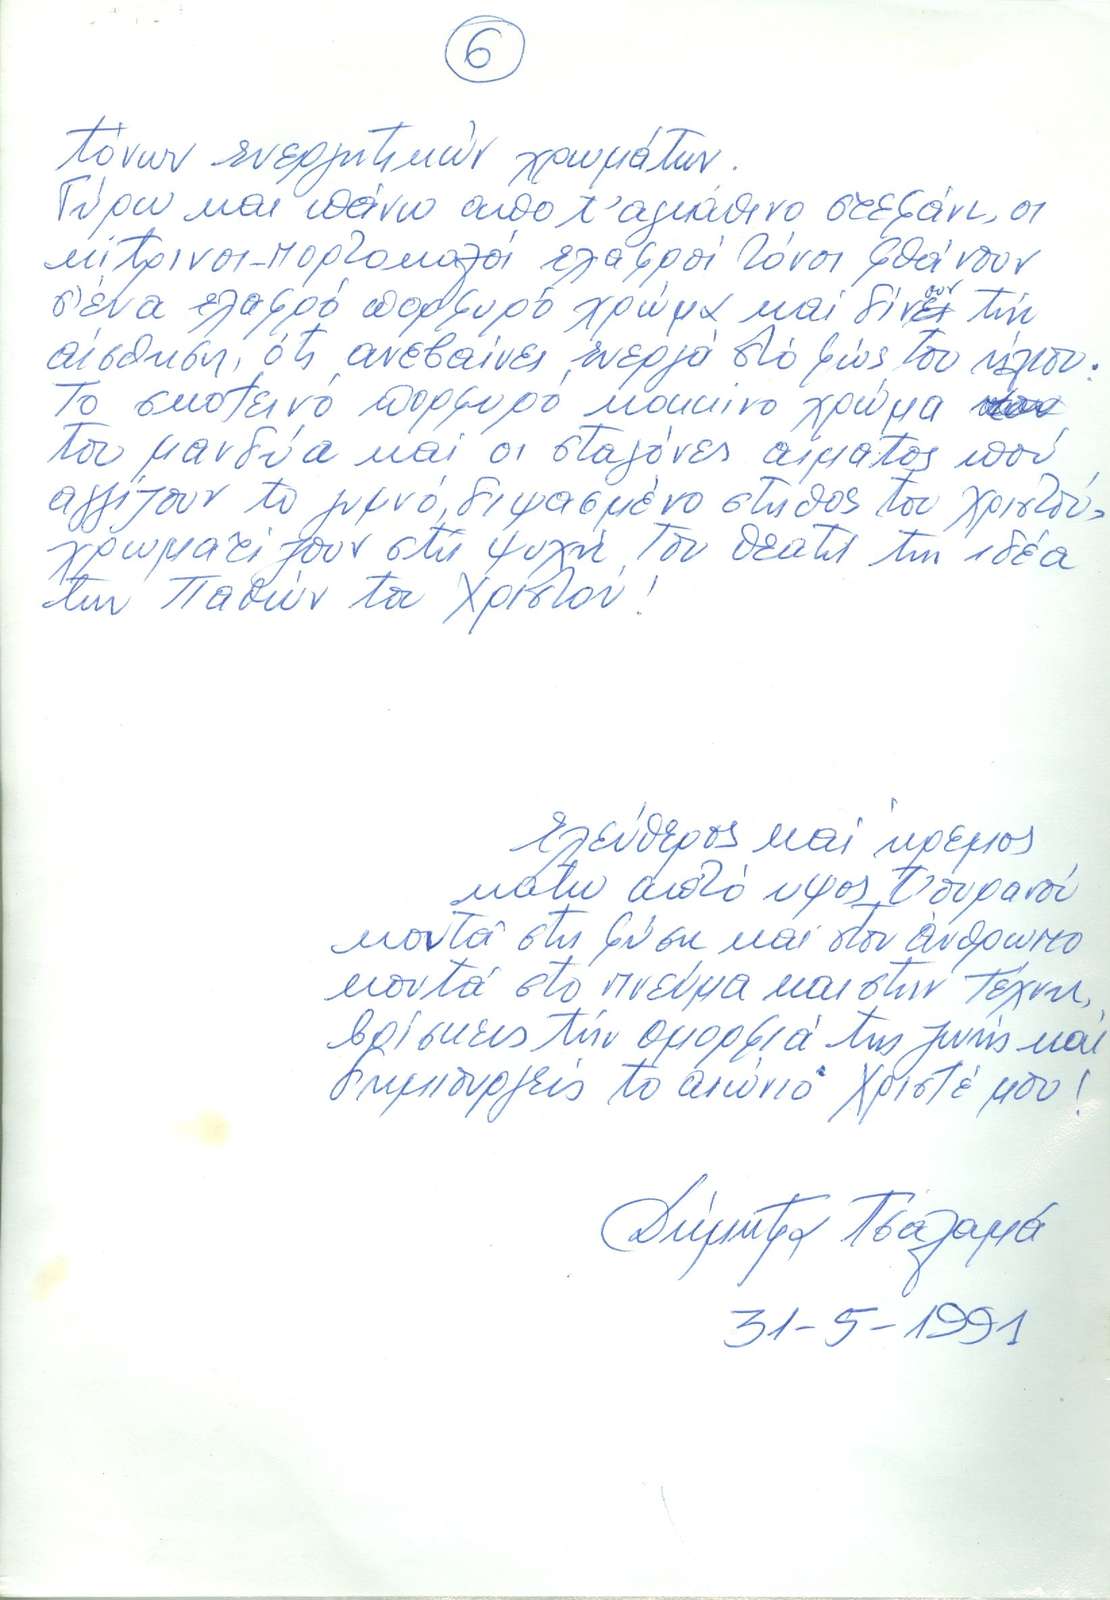 6
τόνων ενεργητικών χρωμάτων.
Γύρω και πάνω απο τ'αγκάθινο στεφάνι, οι
κίτρινοι-πορτοκαλοί ελαφροί τόνοι φθάνουν
σ'ένα ελαφρό πορφυρό χρώμα και δίνουν τήν
αίσθηση, ότι ανεβαίνει ενεργά στό φώς του ήλιου.
Το σκοτεινό πορφυρό κοκκινο χρώμα
του μανδύα και οι σταγόνες αίματος πού
αγγίζουν το γυμνό, διψασμένο στηθος του Χριστού,
χρωματίζουν στή ψυχή του θεατή την ιδέα
των Παθών του Χριστού!
Ελεύθερος και ήρεμος
κατω απτό υψος τ'ουρανού
κοντά στη φύση και στον άνθρωπο
κοντά στο πνεύμα και στην Τέχνη,
βρίσκεις τήν ομορφιά της ζωής καί
δημιουργείς το αιώνιο Χριστέ μου!
Δήμητρα Τσαλαμά
31-5-1991